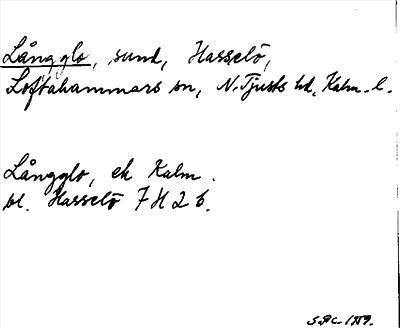 Långglo, sund, Hasselö,
Loftahammars sn, N. Tjusts hd, Kalm. l.
Långglo, ek Kalm.
bl. Hasselö 7H 2 b.